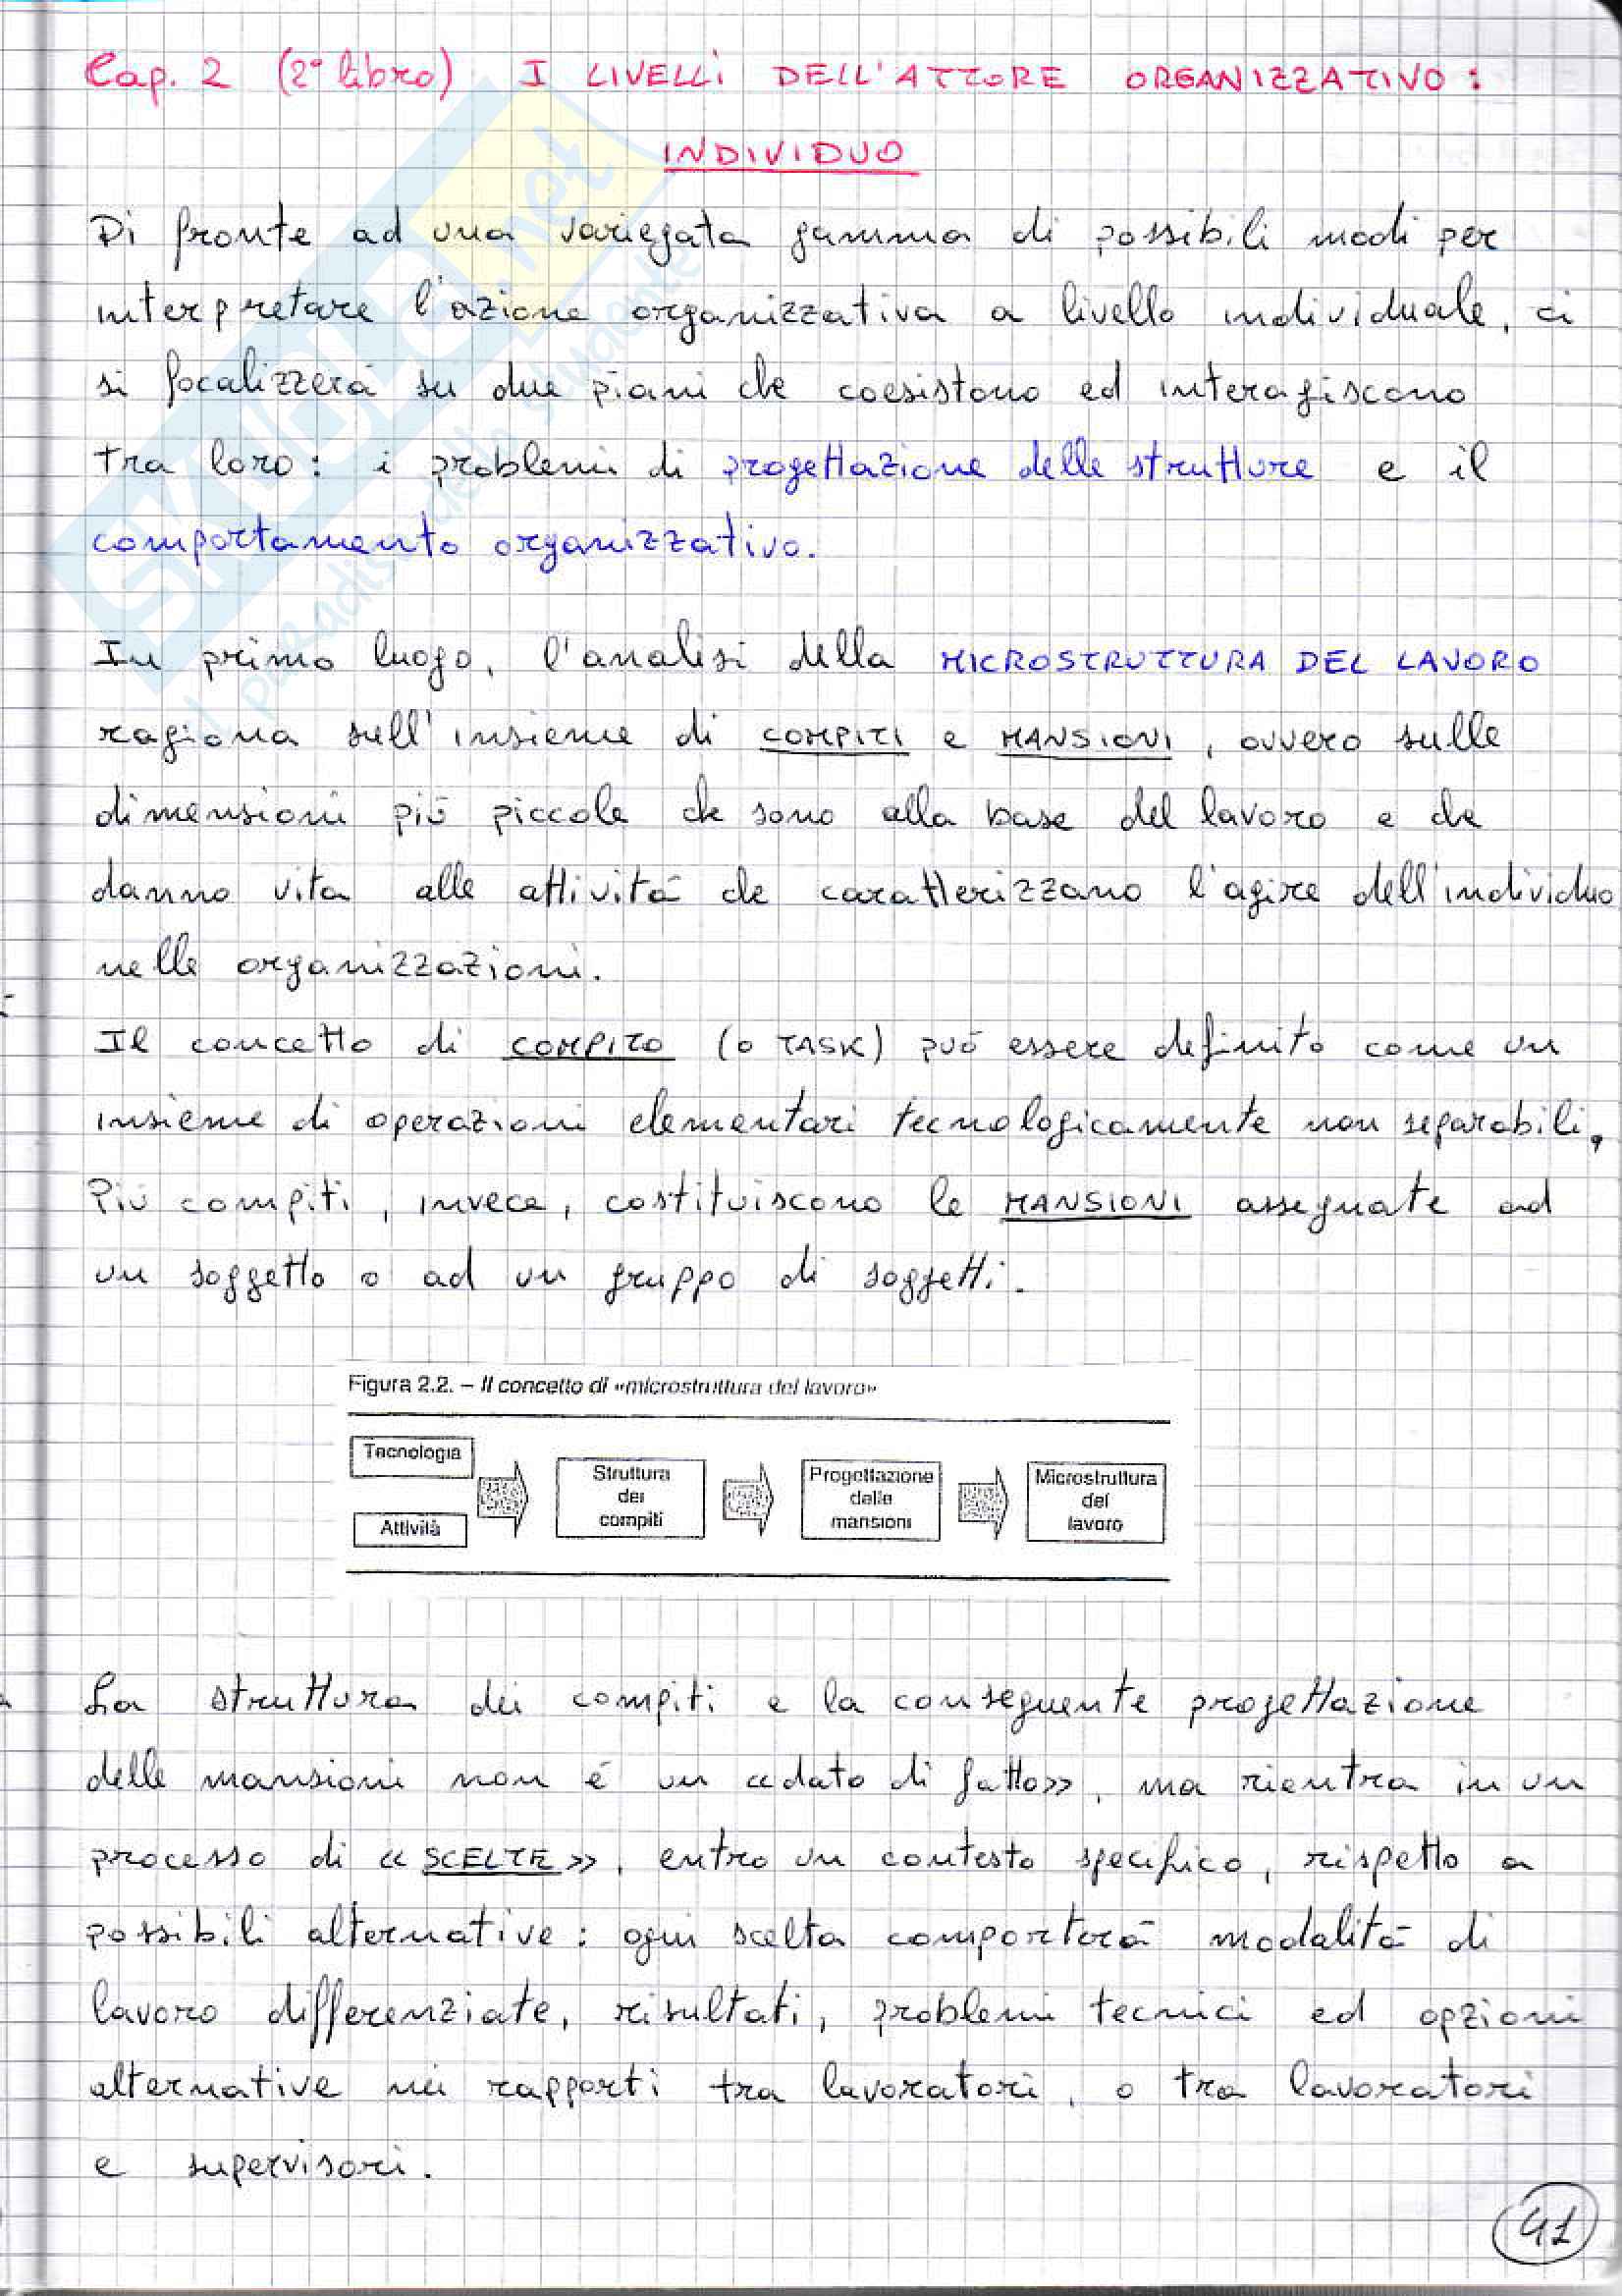 Cap. 2 (2° libro) I LIVELLI DELL'ATTORE ORGANIZZATIVO:
INDIVIDUO
Di fronte ad una variegata gamma di possibili modi per
interpretare l'azione organizzativa a livello individuale, ci
si focalizzerà su due piani che coesistono ed interagiscono
tra loro: i problemi di progettazione delle strutture e il
comportamento organizzativo.
In primo luogo, l'analisi della MICROSTRUTTURA DEL LAVORO
ragiona sull'insieme di COMPITI e MANSIONI, ovvero sulle
dimensioni più piccole che sono alla base del lavoro e che
danno vita alle attività che caratterizzano l'agire dell'individuo
nelle organizzazioni.
Il concetto di COMPITO (o TASK) può essere definito come un
insieme di operazioni elementari tecnologicamente non separabili.
Più compiti, invece, costituiscono le MANSIONI assegnate ad
un soggetto o ad un gruppo di soggetti.
Figura 2.2. – Il concetto di «microstruttura del lavoro»
Tecnologia
Attività
Struttura
dei
compiti
Progettazione
delle
mansioni
Microstruttura
del
lavoro
La struttura dei compiti e la conseguente progettazione
delle mansioni non è un «dato di fatto», ma rientra in un
processo di «SCELTE», entro un contesto specifico, rispetto a
possibili alternative: ogni scelta comporterà modalità di
lavoro differenziate, risultati, problemi tecnici ed opzioni
alternative nei rapporti tra lavoratori, o tra lavoratori
e supervisori.
41
SKUOLA.net